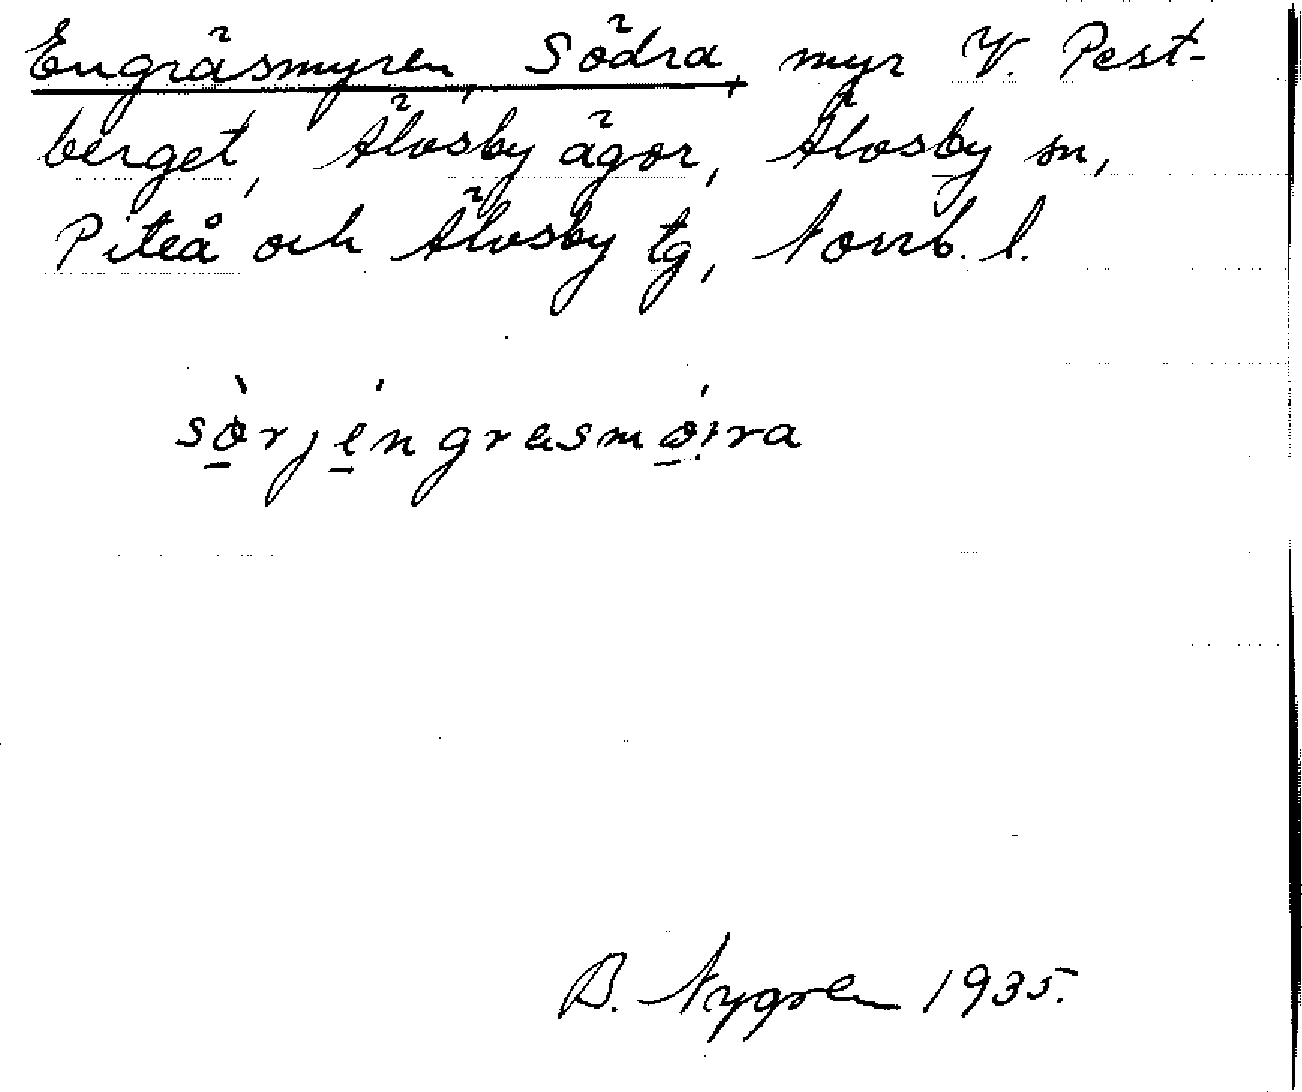 Engräsmyren, Södra, myr V. Pest-
berget, Älvsby ägor, Älvsby sn,
Piteå och Älvsby tg, Norrb. l.
sò̱rjé̱ngrasmó̱i̩ra
B. Nygren 1935.